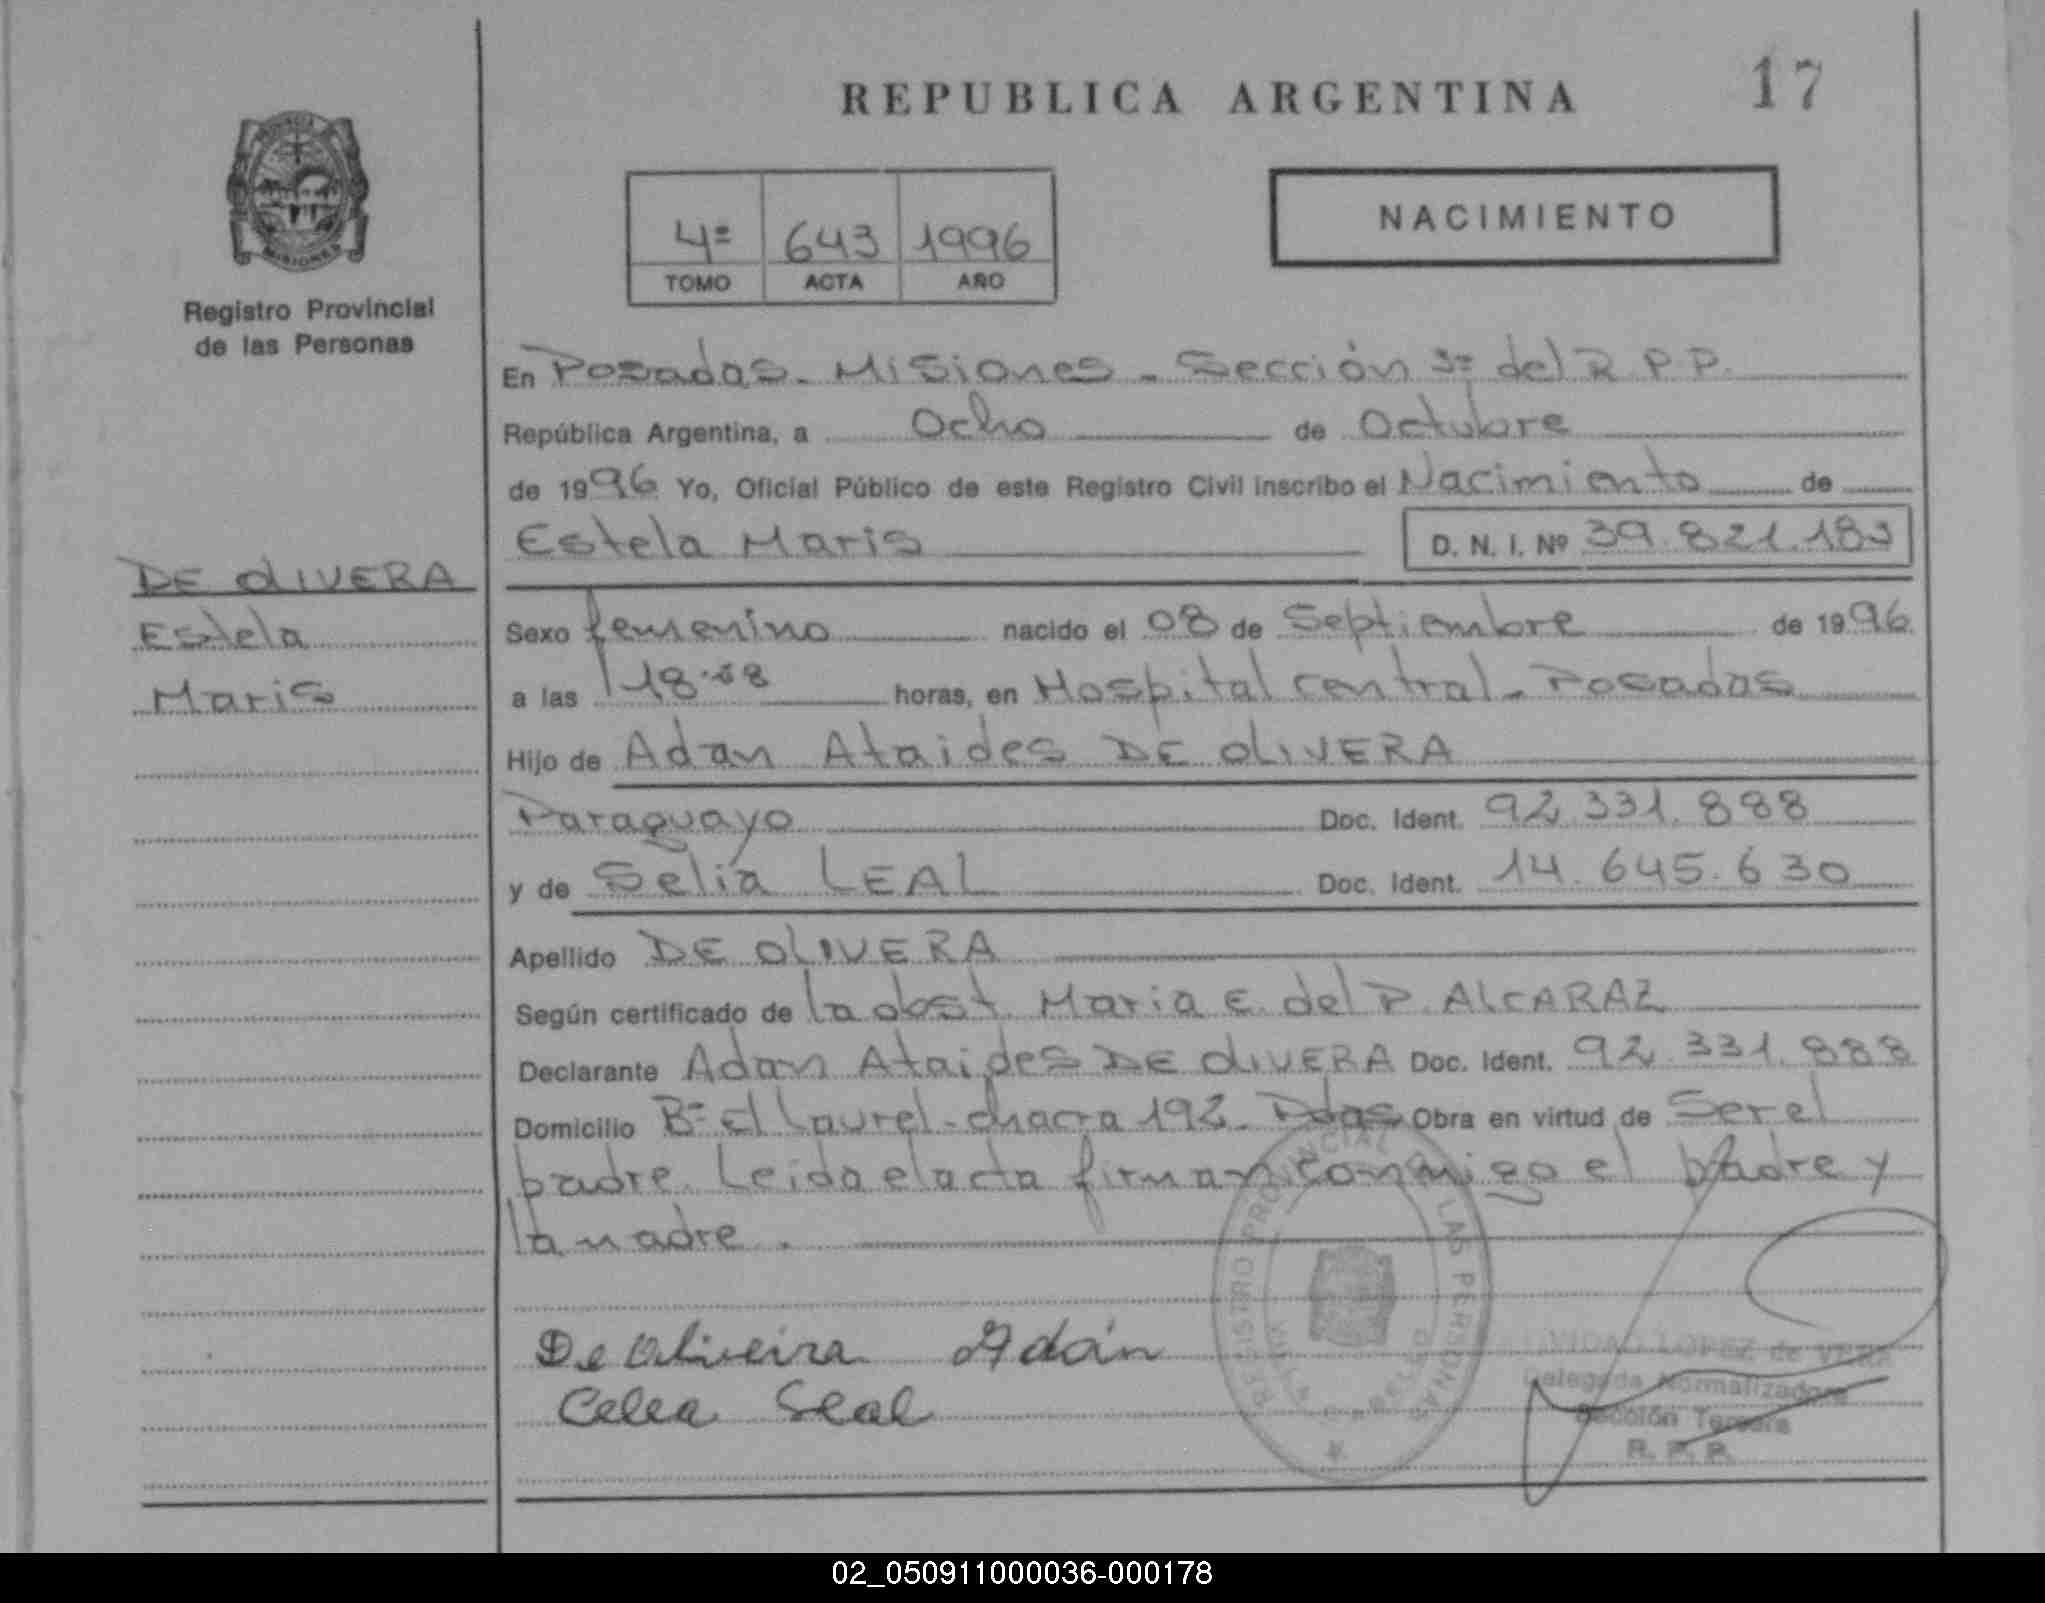 REPUBLICA ARGENTINA
17
PROVINCIA
MISIONES
Registro Provincial
de las Personas
4º 643 1996
TOMO ACTA AÑO
NACIMIENTO
En Posadas - Misiones - Sección 3º del R.P.P.
República Argentina, a Ocho de Octubre
de 1996 Yo, Oficial Público de este Registro Civil inscribo el Nacimiento de
Estela Maris D. N. I. Nº 39.821.183
DE OLIVERA
Estela
Maris
Sexo femenino nacido el 08 de Septiembre de 1996
a las 18.08 horas, en Hospital central - Posadas
Hijo de Adan Ataides DE OLIVERA
Paraguayo Doc. Ident. 92.331.888
y de Selia LEAL Doc. Ident. 14.645.630
Apellido DE OLIVERA
Según certificado de la obst. Maria E. del P. ALCARAZ
Declarante Adan Ataides DE OLIVERA Doc. Ident. 92.331.888
Domicilio Bº El Laurel - chacra 192 - Pdas Obra en virtud de Ser el
padre. Leida el acta firman conmigo el padre y
la madre.
De Oliveira Adán
Celea Leal
REGISTRO PROVINCIAL LAS PERSONAS
LOPEZ de VERA
Delegada Normalizadora
Sección Tercera
R. P. P.
02_050911000036-000178